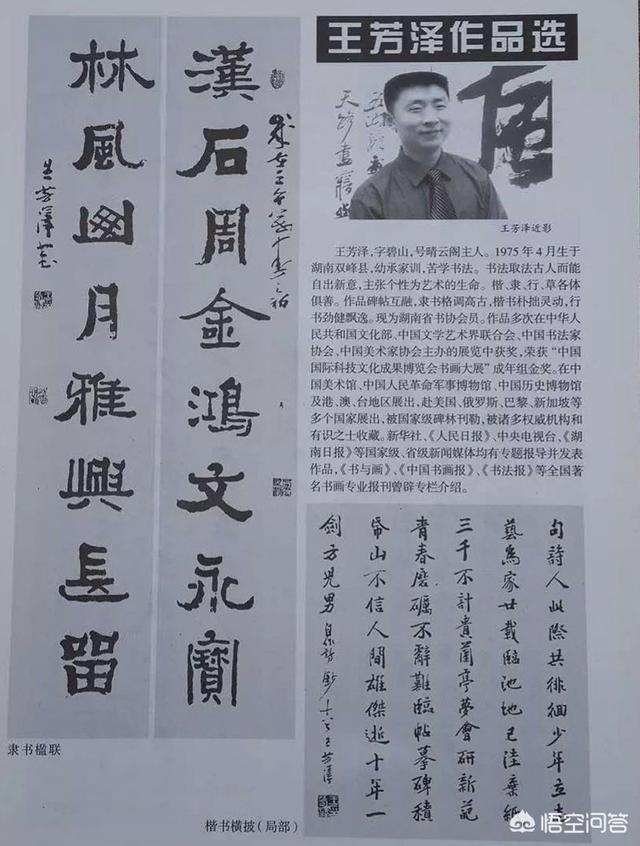 王芳泽作品选
漢石周金鴻文永寶
林風幽月雅興長留
王芳澤
隶书楹联
王芳泽近影
王芳泽,字碧山,号晴云阁主人。1975年4月生于
湖南双峰县,幼承家训,苦学书法。书法取法古人而能
自出新意,主张个性为艺术的生命。楷、隶、行、草各体
俱善。作品碑帖互融,隶书格调高古,楷书朴拙灵动,行
书劲健飘逸。现为湖南省书协会员。作品多次在中华人
民共和国文化部、中国文学艺术界联合会、中国书法家
协会、中国美术家协会主办的展览中获奖,荣获“中国
国际科技文化成果博览会书画大展”成年组金奖。在中
国美术馆、中国人民革命军事博物馆、中国历史博物馆
及港、澳、台地区展出,赴美国、俄罗斯、巴黎、新加坡等
多个国家展出,被国家级碑林刊勒,被诸多权威机构和
有识之士收藏。新华社、《人民日报》、中央电视台、《湖
南日报》等国家级、省级新闻媒体均有专题报导并发表
作品,《书与画》、《中国书画报》、《书法报》等全国著
名书画专业报刊曾辟专栏介绍。
句詩人此際共徘徊少年立志
藝為家廿載臨池地已洼棄紙
三千不計貴蘭亭夢會研新範
青春磨礪不辭難臨帖摹碑積
帋山不信人間雄傑逝十年一
劍方児男 王芳澤
楷书横披(局部)
悟空问答